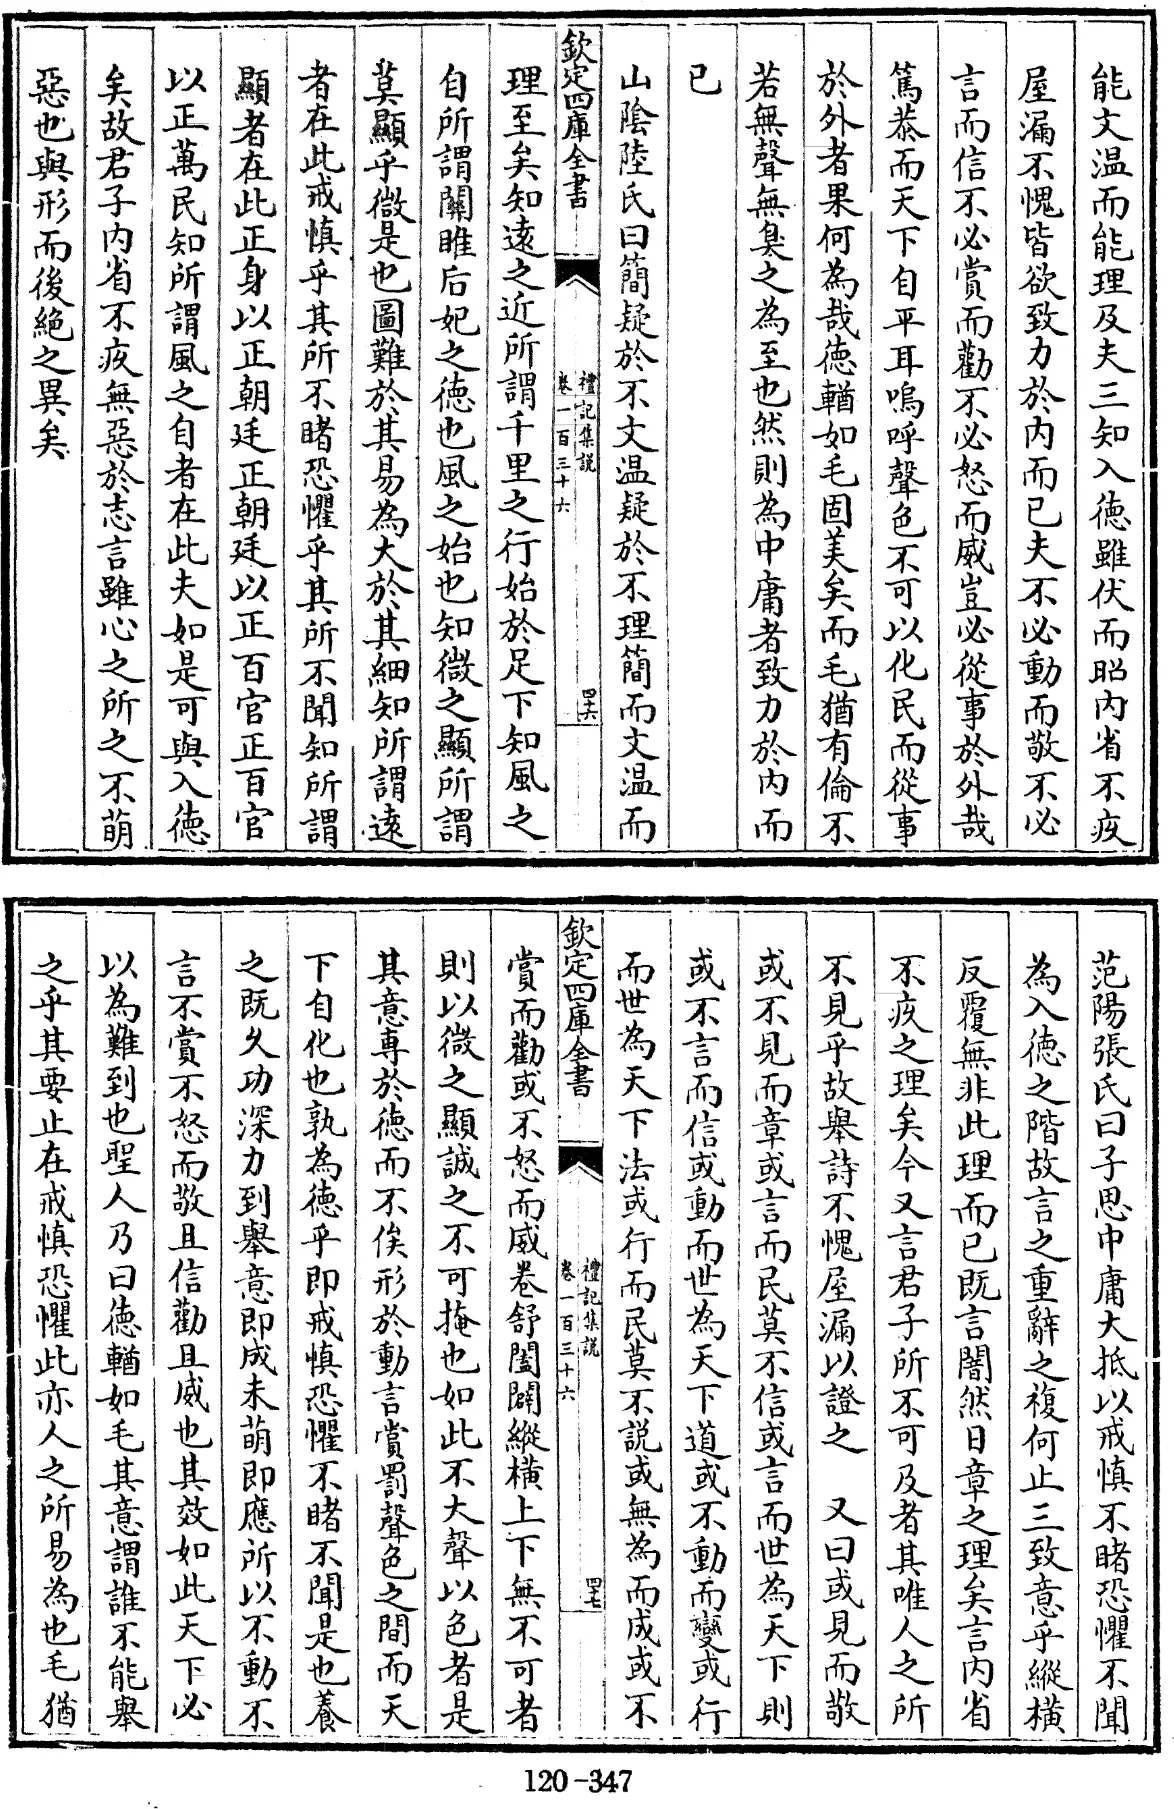 能文温而能理及夫三知入徳雖伏而昭内省不疚
屋漏不愧皆欲致力於内而已夫不必動而敬不必
言而信不必賞而勸不必怒而威豈必從事於外哉
篤恭而天下自平耳嗚呼聲色不可以化民而從事
於外者果何為哉徳輶如毛固美矣而毛猶有倫不
若無聲無臭之為至也然則為中庸者致力於内而
已
山陰陸氏曰簡疑於不文温疑於不理簡而文温而
欽定四庫全書
禮記集說
卷一百三十六
四六
理至矣知逺之近所謂千里之行始於足下知風之
自所謂關雎后妃之徳也風之始也知微之顯所謂
莫顯乎微是也圖難於其易為大於其細知所謂逺
者在此戒慎乎其所不睹恐懼乎其所不聞知所謂
顯者在此正身以正朝廷正朝廷以正百官正百官
以正萬民知所謂風之自者在此夫如是可與入徳
矣故君子内省不疚無惡於志言雖心之所之不萌
惡也與形而後絶之異矣
范陽張氏曰子思中庸大抵以戒慎不睹恐懼不聞
為入徳之階故言之重辭之複何止三致意乎縱横
反覆無非此理而已既言闇然日章之理矣言内省
不疚之理矣今又言君子所不可及者其唯人之所
不見乎故舉詩不愧屋漏以證之 又曰或見而敬
或不見而章或言而民莫不信或言而世為天下則
或不言而信或動而世為天下道或不動而變或行
而世為天下法或行而民莫不說或無為而成或不
欽定四庫全書
禮記集說
卷一百三十六
四七
賞而勸或不怒而威卷舒闔闢縱横上下無不可者
則以微之顯誠之不可掩也如此不大聲以色者是
其意專於徳而不俟形於動言賞罰聲色之間而天
下自化也孰為徳乎即戒慎恐懼不睹不聞是也養
之既久功深力到舉意即成未萌即應所以不動不
言不賞不怒而敬且信勸且威也其效如此天下必
以為難到也聖人乃曰徳輶如毛其意謂誰不能舉
之乎其要止在戒慎恐懼此亦人之所易為也毛猶
120-347